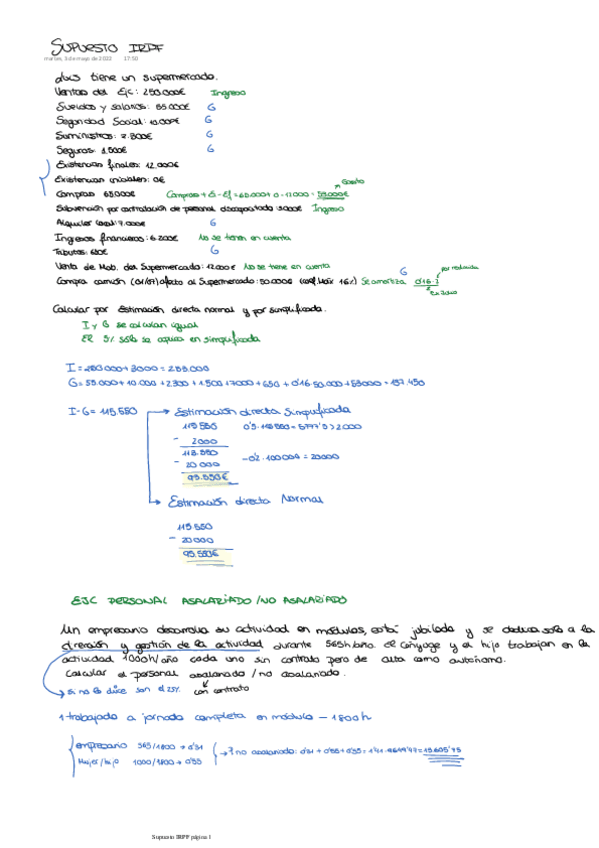 SUPUESTO IRPF
martes, 3 de mayo de 2022 17:50
Luis tiene un supermercado.
Ventas del Ejc: 250.000€ Ingreso
Sueldos y salarios: 55.000€ G
Seguridad Social: 10.000€ G
Suministros: 2.300€ G
Seguros: 1.500€ G
Existencias finales: 12.000€
Existencias iniciales: 0€
Compras 65.000€ Compras + Ei - Ef = 65.000 + 0 - 12.000 = 53.000€ → Gasto
Subvención por contratación de personal discapacitado 3000€ Ingreso
Alquiler local: 7.000€ G
Ingresos financieros: 6.200€ No se tienen en cuenta
Tributos: 650€ G
Venta de Mob. del Supermercado: 12.000€ No se tiene en cuenta
Compra camión (01/07) afecto al Supermercado: 50.000€ (coef. Máx 16%) Se amortiza G
Calcular por Estimación directa normal y por simplificada.
I y G se calculan igual
ER 5% sólo se aplica en simplificada
G = 55.000 + 10.000 + 2.300 + 1.500 + 7000 + 650 + 0'16·50.000 + 53000 = 137.450
I - G = 115.550 → Estimación directa Simplificada
- 2000
113.550
- 20.000
93.550€
→ Estimación directa Normal
115.550
- 20000
95.550€
EJC PERSONAL ASALARIADO / NO ASALARIADO
Un empresario desarrolla su actividad en módulos, está jubilado y se dedica solo a la
dirección y gestión de la actividad durante 565h/año. El cónyuge y el hijo trabajan en la
actividad 1000h/año cada uno sin contrato pero de alta como autónomo.
Calcular el personal asalariado / no asalariado.
→ Si no lo dice son el 25% con contrato
1 trabajado a jornada completa en módulo - 1800h
empresario 565/1800 → 0'31
Mujer/hijo 1000/1800 → 0'55
Supuesto IRPF página 1